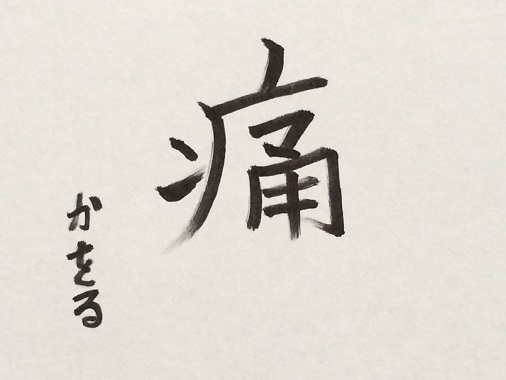 痛
かをる